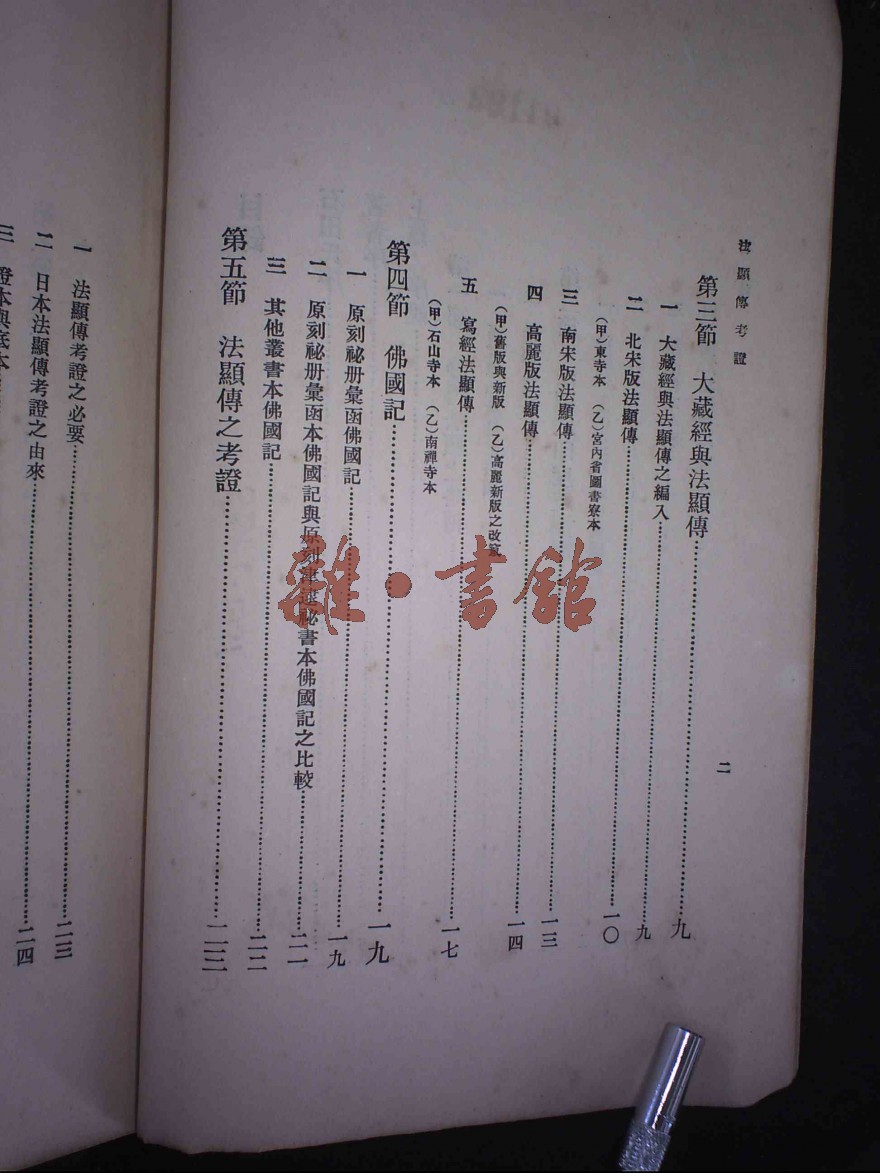 法顯傳考證
二
第三節　大藏經與法顯傳……九
一　大藏經與法顯傳之編入……九
二　北宋版法顯傳……一〇
（甲）東寺本　（乙）宮內省圖書寮本
三　南宋版法顯傳……一三
四　高麗版法顯傳……一四
（甲）舊版與新版　（乙）高麗新版之改竄
五　寫經法顯傳……一七
（甲）石山寺本　（乙）南禪寺本
第四節　佛國記……一九
一　原刻祕册彙函佛國記……一九
二　原刻祕册彙函本佛國記與原刻津逮祕書本佛國記之比較……二一
三　其他叢書本佛國記……二二
第五節　法顯傳之考證……二三
一　法顯傳考證之必要……二三
二　日本法顯傳考證之由來……二四
三　證本與底本
雜·書館